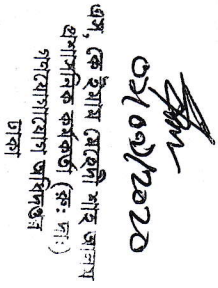 এম, কে ইমাম মেহেদী শাহ আলম
প্রশাসনিক কর্মকর্তা (রু: দা:)
গণযোগাযোগ অধিদপ্তর
ঢাকা